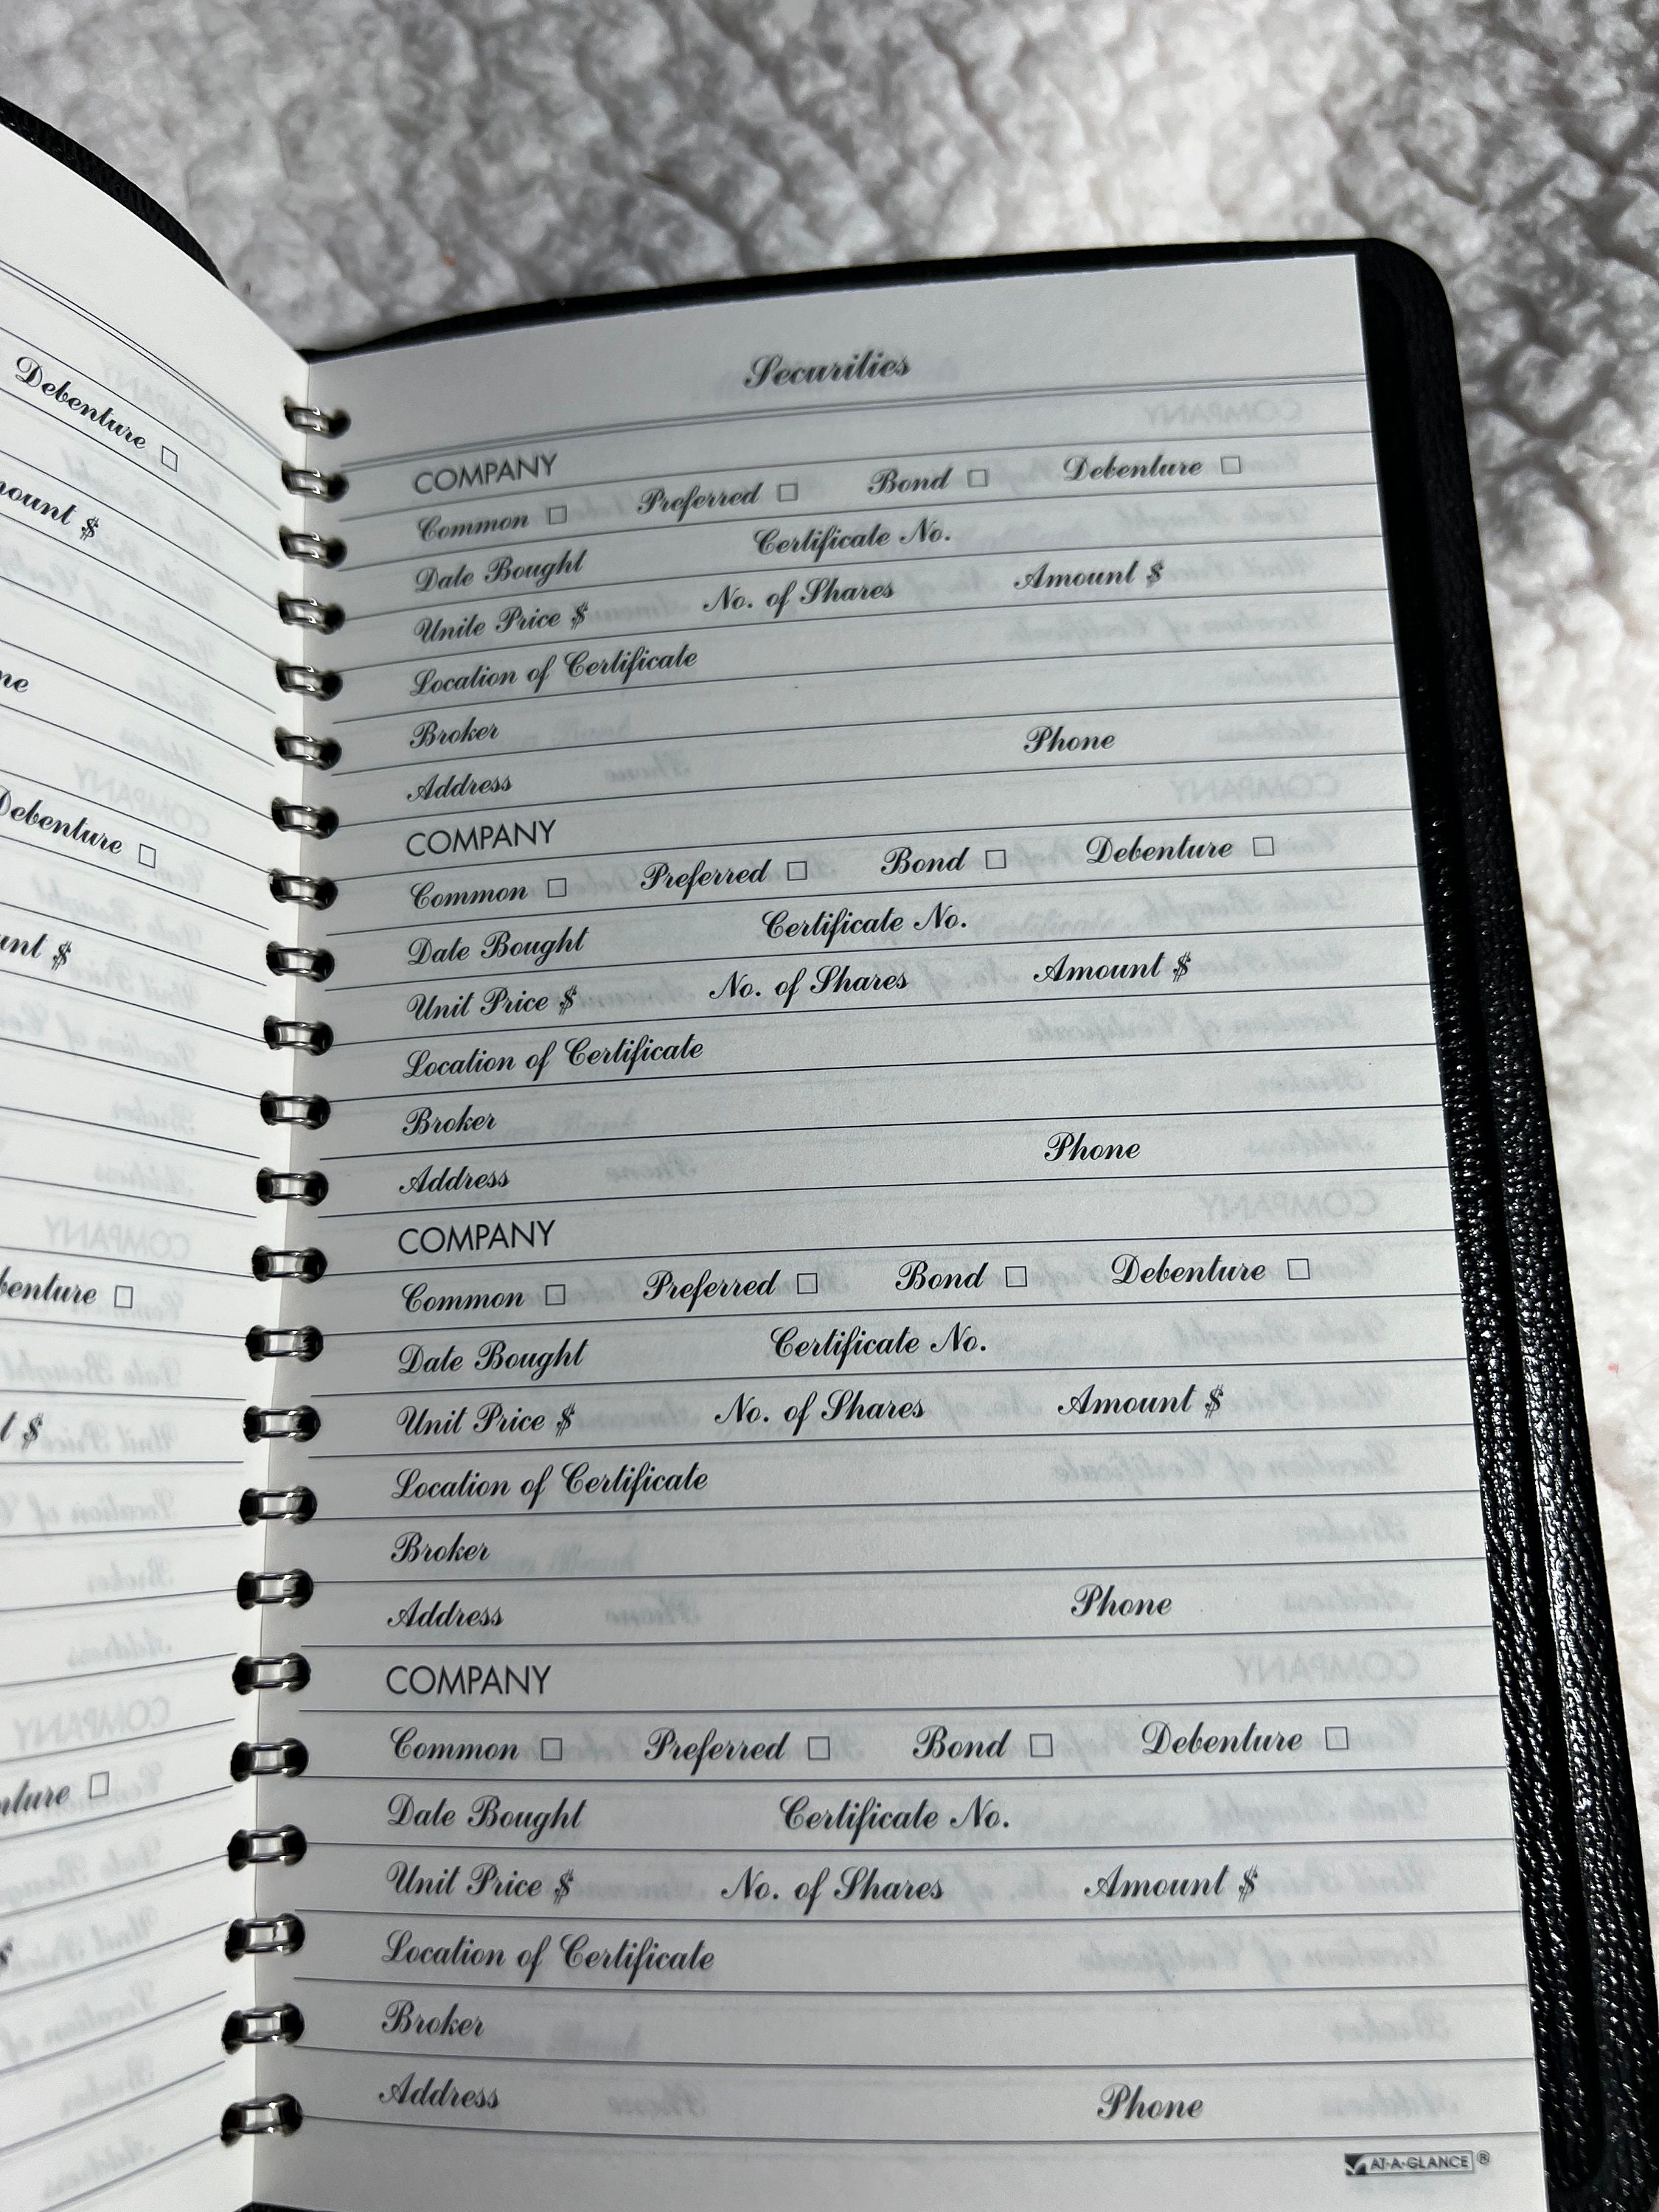 Debenture □
Amount $
Debenture □
$
Debenture □
$
Securities
COMPANY
Common □ Preferred □ Bond □ Debenture □
Date Bought Certificate No.
Unite Price $ No. of Shares Amount $
Location of Certificate
Broker
Address Phone
COMPANY
Common □ Preferred □ Bond □ Debenture □
Date Bought Certificate No.
Unit Price $ No. of Shares Amount $
Location of Certificate
Broker
Address Phone
COMPANY
Common □ Preferred □ Bond □ Debenture □
Date Bought Certificate No.
Unit Price $ No. of Shares Amount $
Location of Certificate
Broker
Address Phone
COMPANY
Common □ Preferred □ Bond □ Debenture □
Date Bought Certificate No.
Unit Price $ No. of Shares Amount $
Location of Certificate
Broker
Address Phone
AT-A-GLANCE®